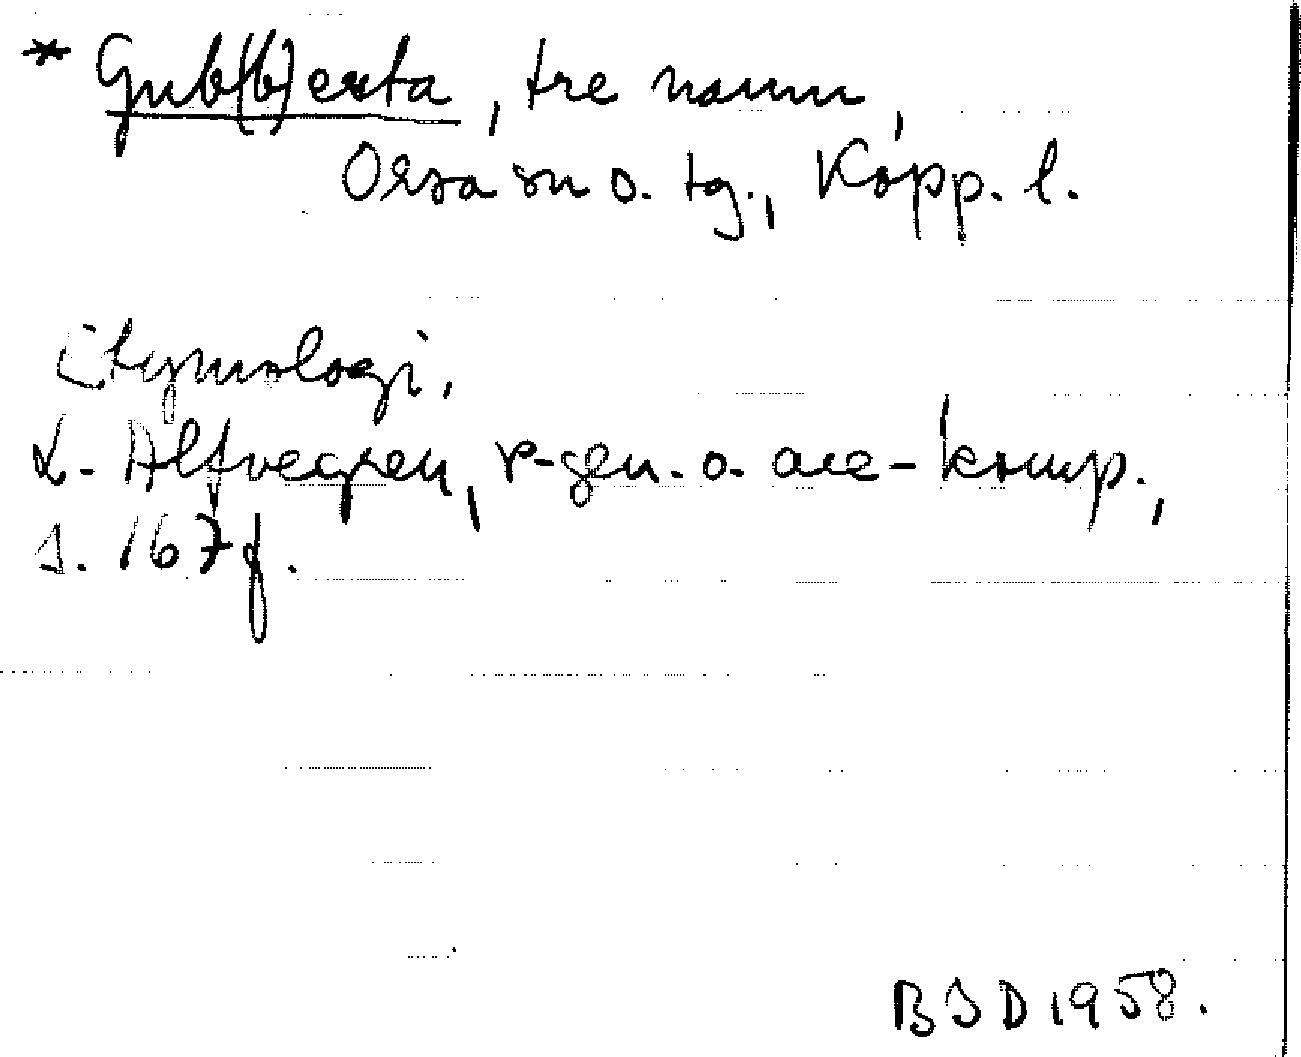 * Gub(b)erta, tre namn,
Orsa sn o. tg., Kopp. l.
Etymologi.
L. Alfvegren, r-gen. o. are-komp.,
s. 167 f.
BSD 1958.